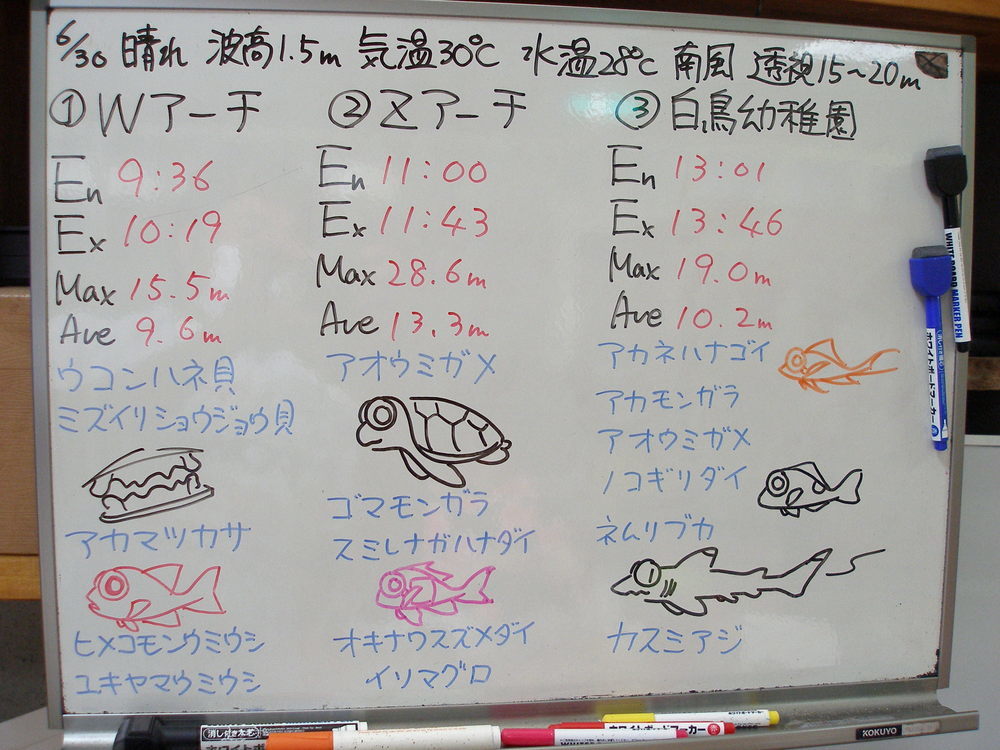 6/30 晴れ 波高1.5m 気温30℃ 水温28℃ 南風 透視15~20m
①Wアーチ
En 9:36
Ex 10:19
Max 15.5m
Ave 9.6m
ウコンハネ貝
ミズイリショウジョウ貝
アカマツカサ
ヒメコモンウミウシ
ユキヤマウミウシ
②Zアーチ
En 11:00
Ex 11:43
Max 28.6m
Ave 13.3m
アオウミガメ
ゴマモンガラ
スミレナガハナダイ
オキナワスズメダイ
イソマグロ
③白鳥幼稚園
En 13:01
Ex 13:46
Max 19.0m
Ave 10.2m
アカネハナゴイ
アカモンガラ
アオウミガメ
ノコギリダイ
ネムリブカ
カスミアジ
WHITEBOARD MARKER PEN
ホワイトボードマーカー
ホワイトボードマーカー
KOKUYO